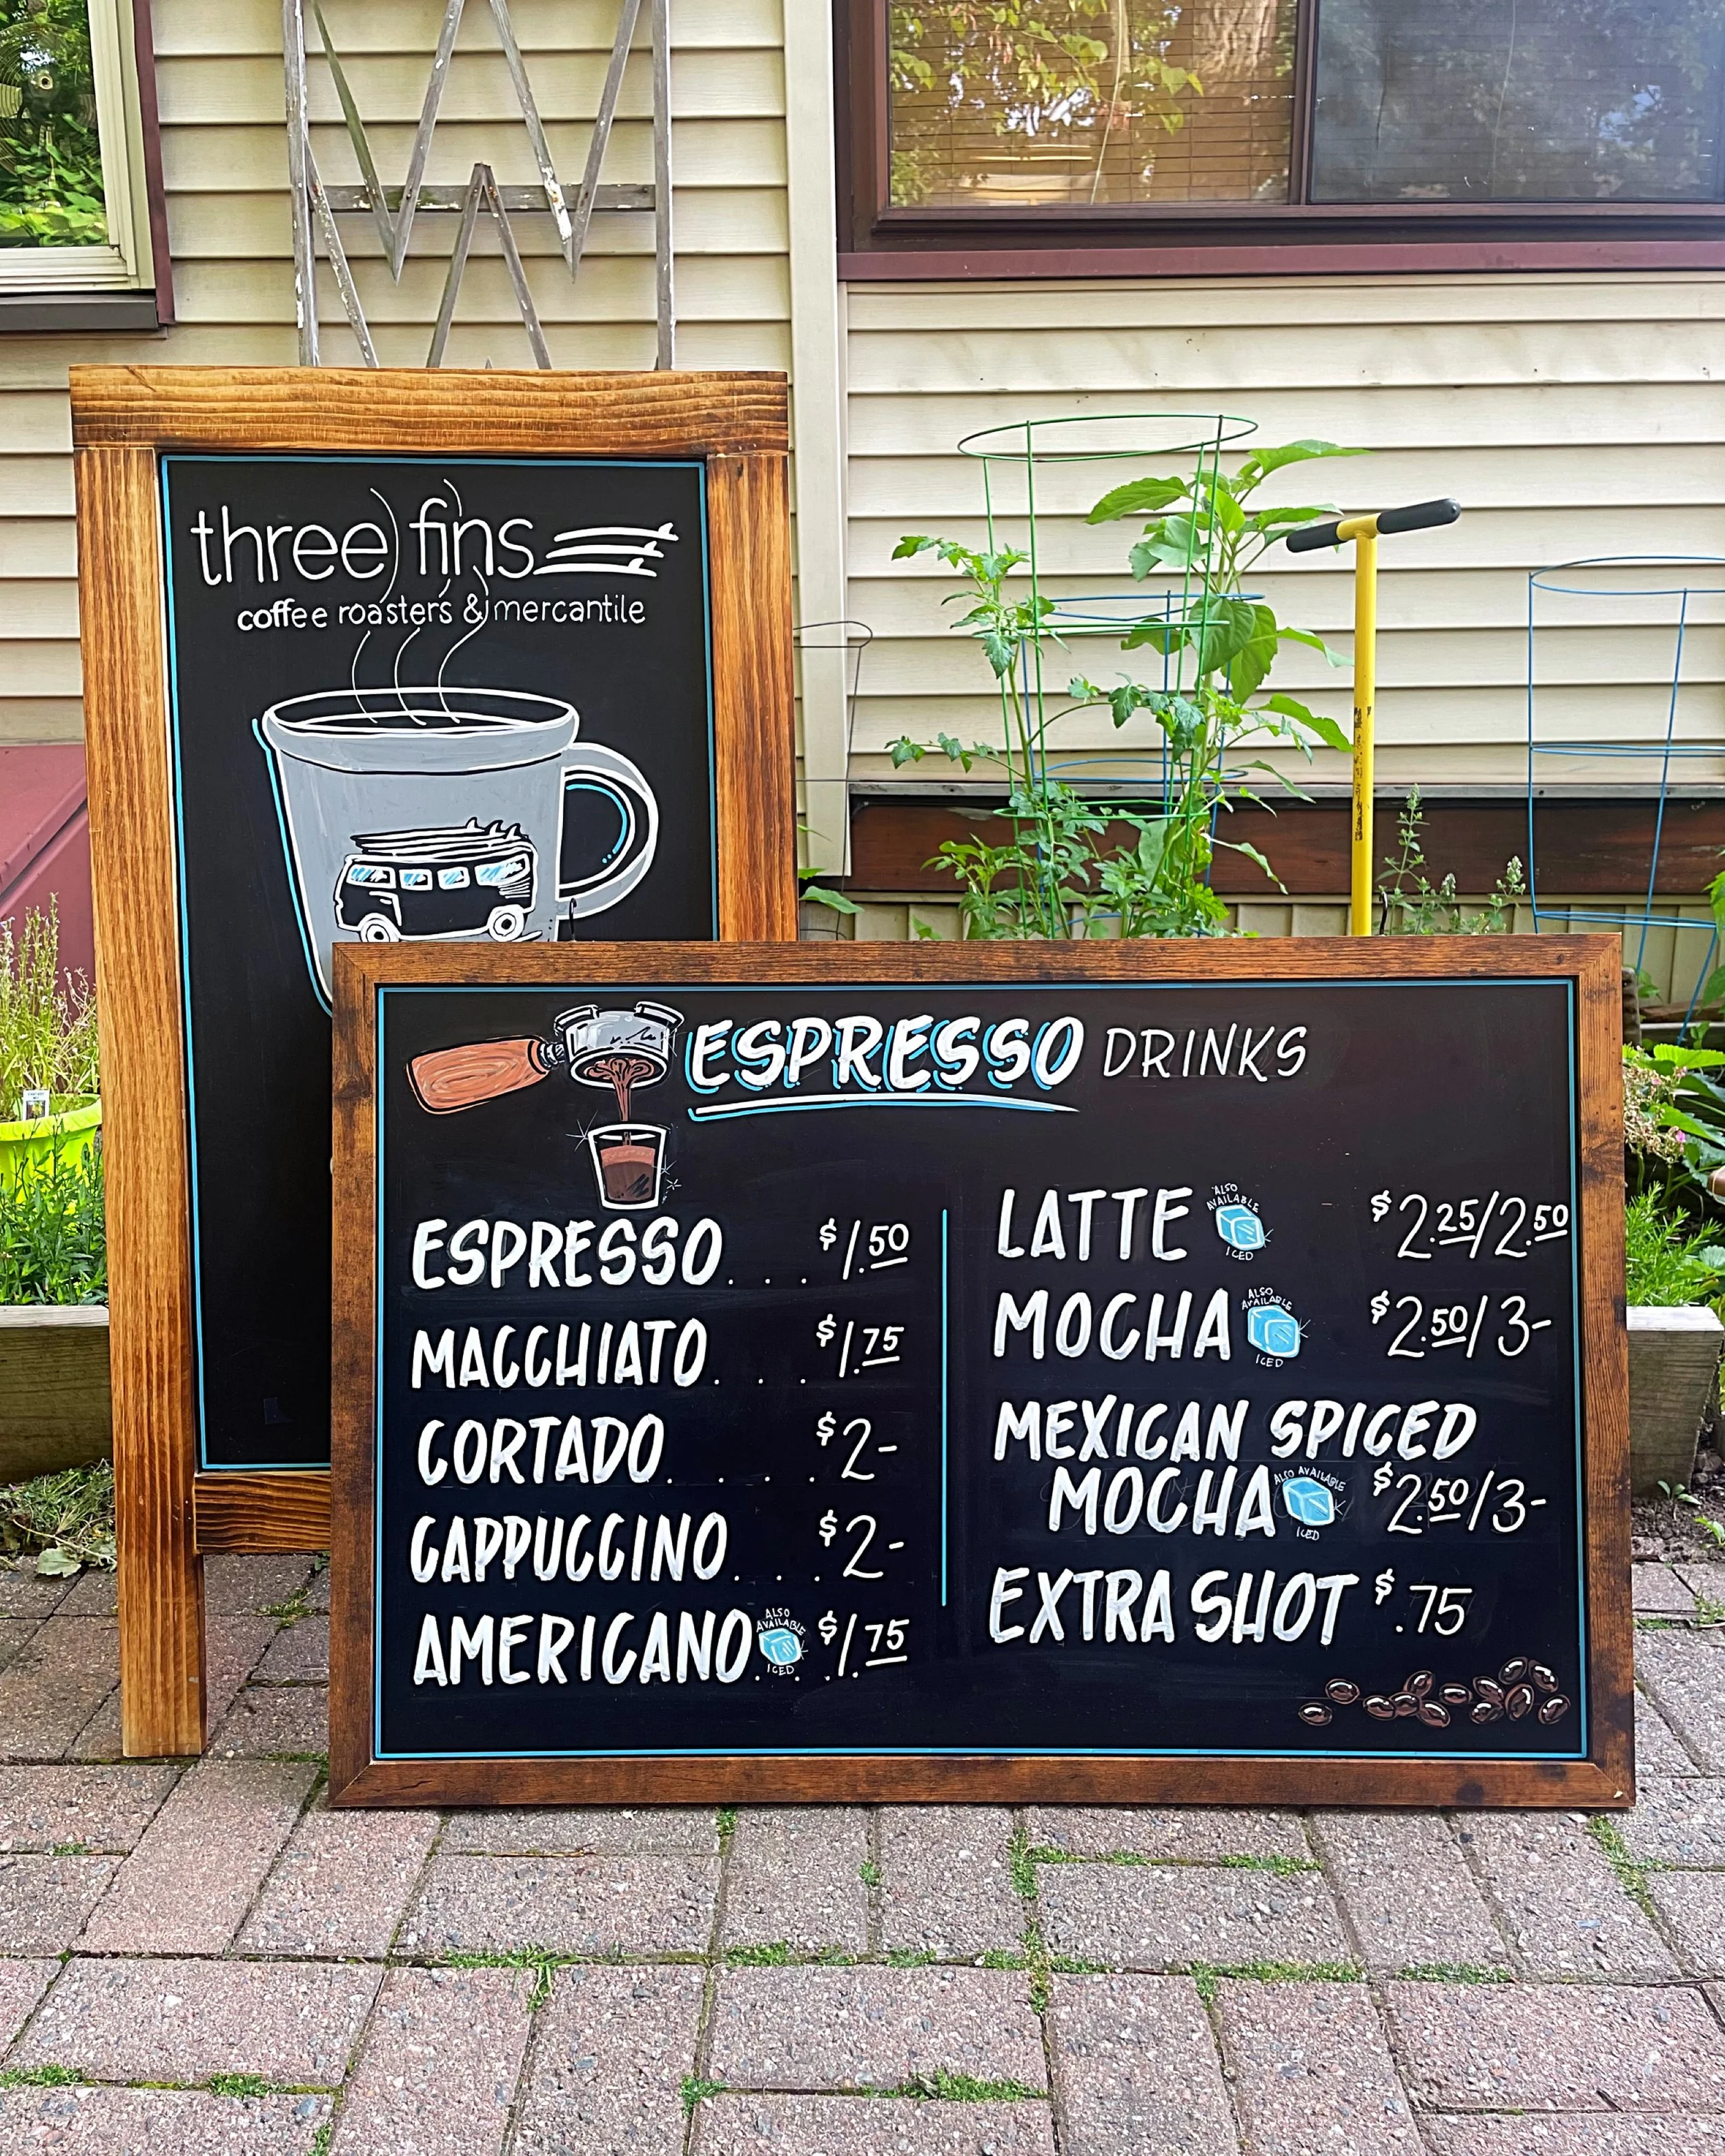 three fins
coffee roasters & mercantile
ESPRESSO DRINKS
ESPRESSO... $1.50
MACCHIATO... $1.75
CORTADO.... $2-
CAPPUCCINO... $2-
AMERICANO ALSO AVAILABLE ICED... $1.75
LATTE ALSO AVAILABLE ICED $2.25/2.50
MOCHA ALSO AVAILABLE ICED $2.50/3-
MEXICAN SPICED
MOCHA ALSO AVAILABLE ICED $2.50/3-
EXTRA SHOT $.75